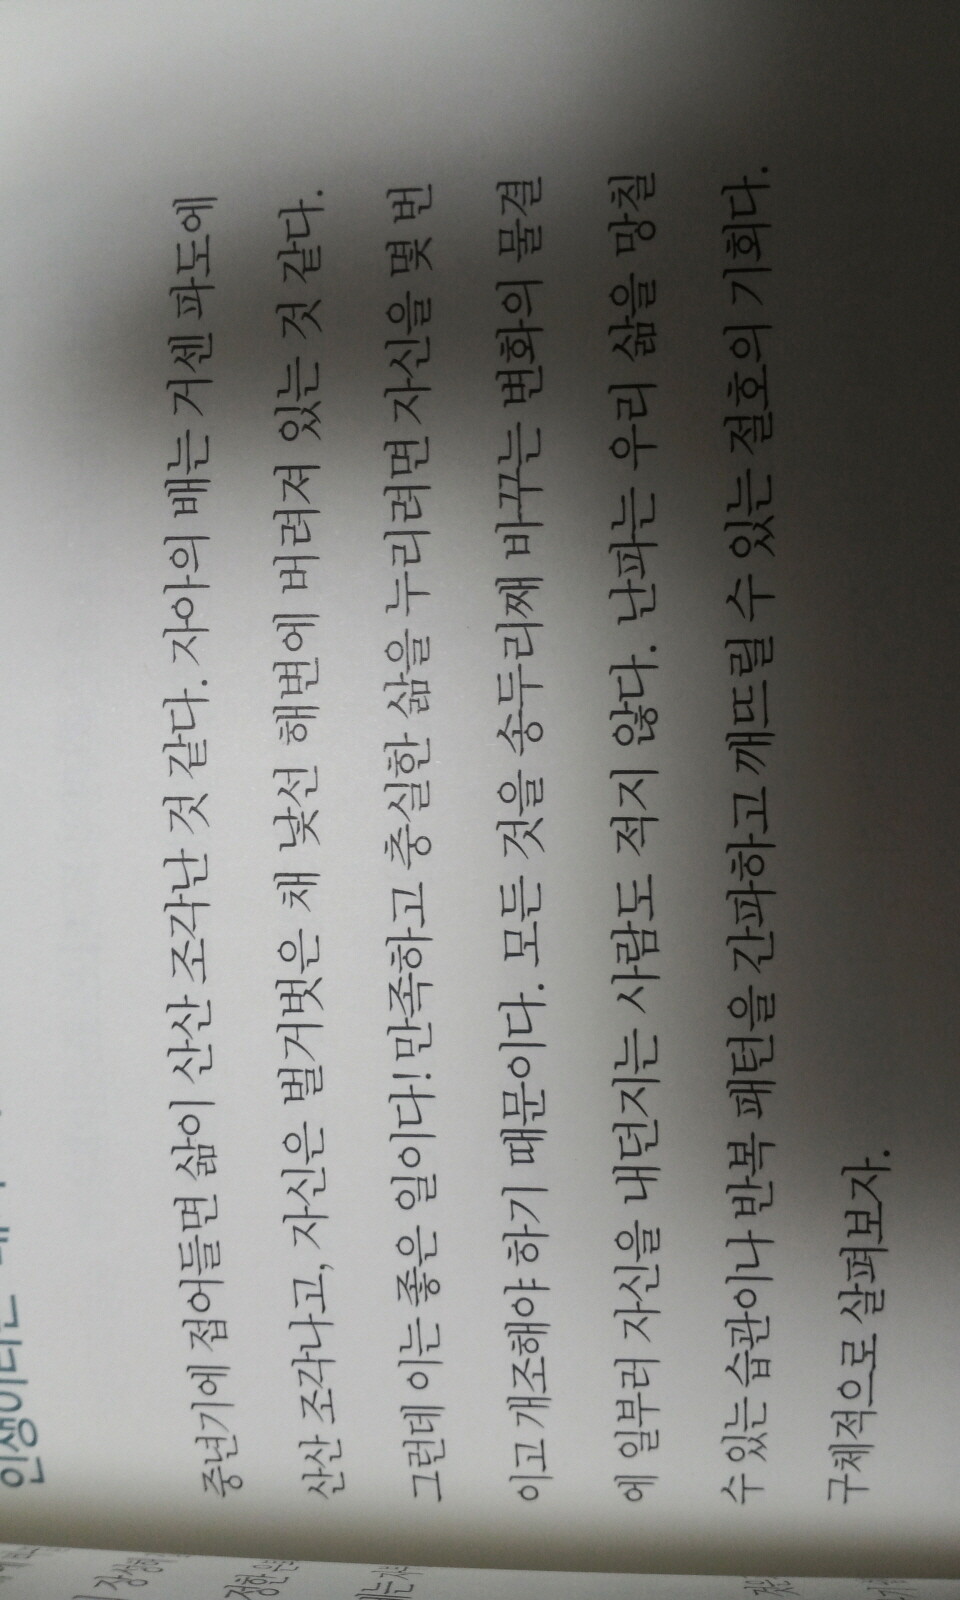 인생이라는
중년기에 접어들면 삶이 산산 조각난 것 같다. 자아의 배는 거센 파도에
산산 조각나고, 자신은 벌거벗은 채 낯선 해변에 버려져 있는 것 같다.
그런데 이는 좋은 일이다! 만족하고 충실한 삶을 누리려면 자신을 몇 번
이고 개조해야 하기 때문이다. 모든 것을 송두리째 바꾸는 변화의 물결
에 일부러 자신을 내던지는 사람도 적지 않다. 난파는 우리 삶을 망칠
수 있는 습관이나 반복 패턴을 간파하고 깨뜨릴 수 있는 절호의 기회다.
구체적으로 살펴보자.